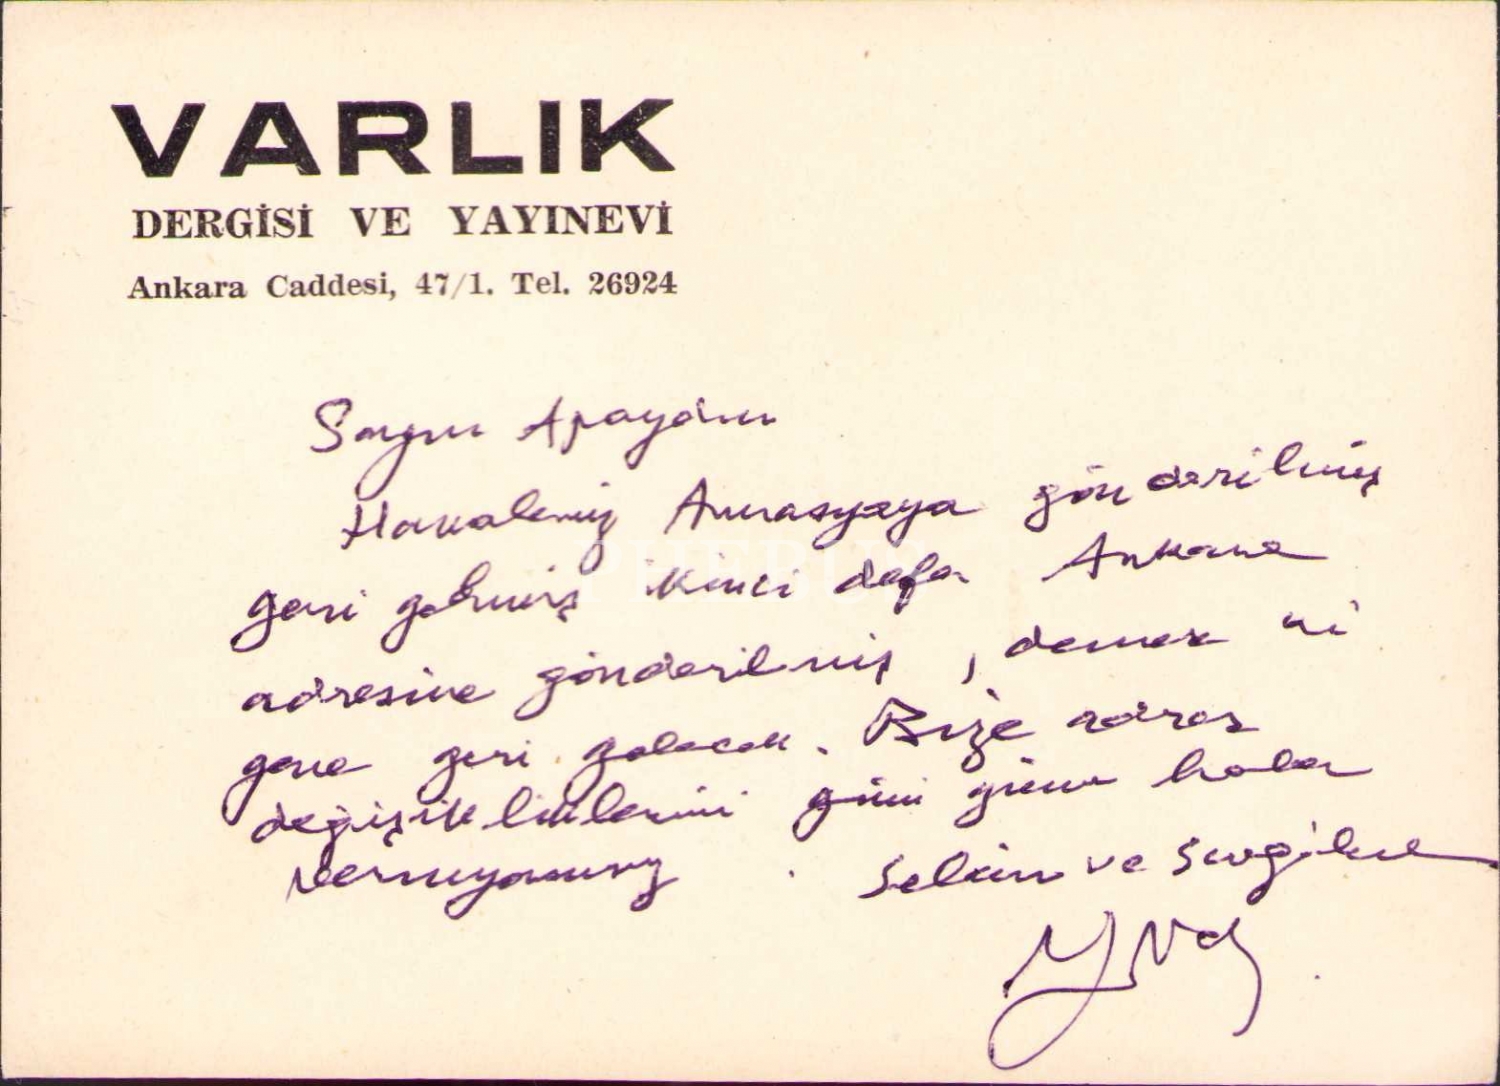 VARLIK
DERGİSİ VE YAYINEVİ
Ankara Caddesi, 47/1. Tel. 26924
Sayın Apaydın
Havaleniz Amasyaya gönderilmiş
geri gelmiş ikinci defa Ankara
adresine gönderilmiş, demek ki
gene geri gelecek. Bize adres
değişikliklerini günü güne haber
vermiyorsunuz. Selâm ve sevgilerle